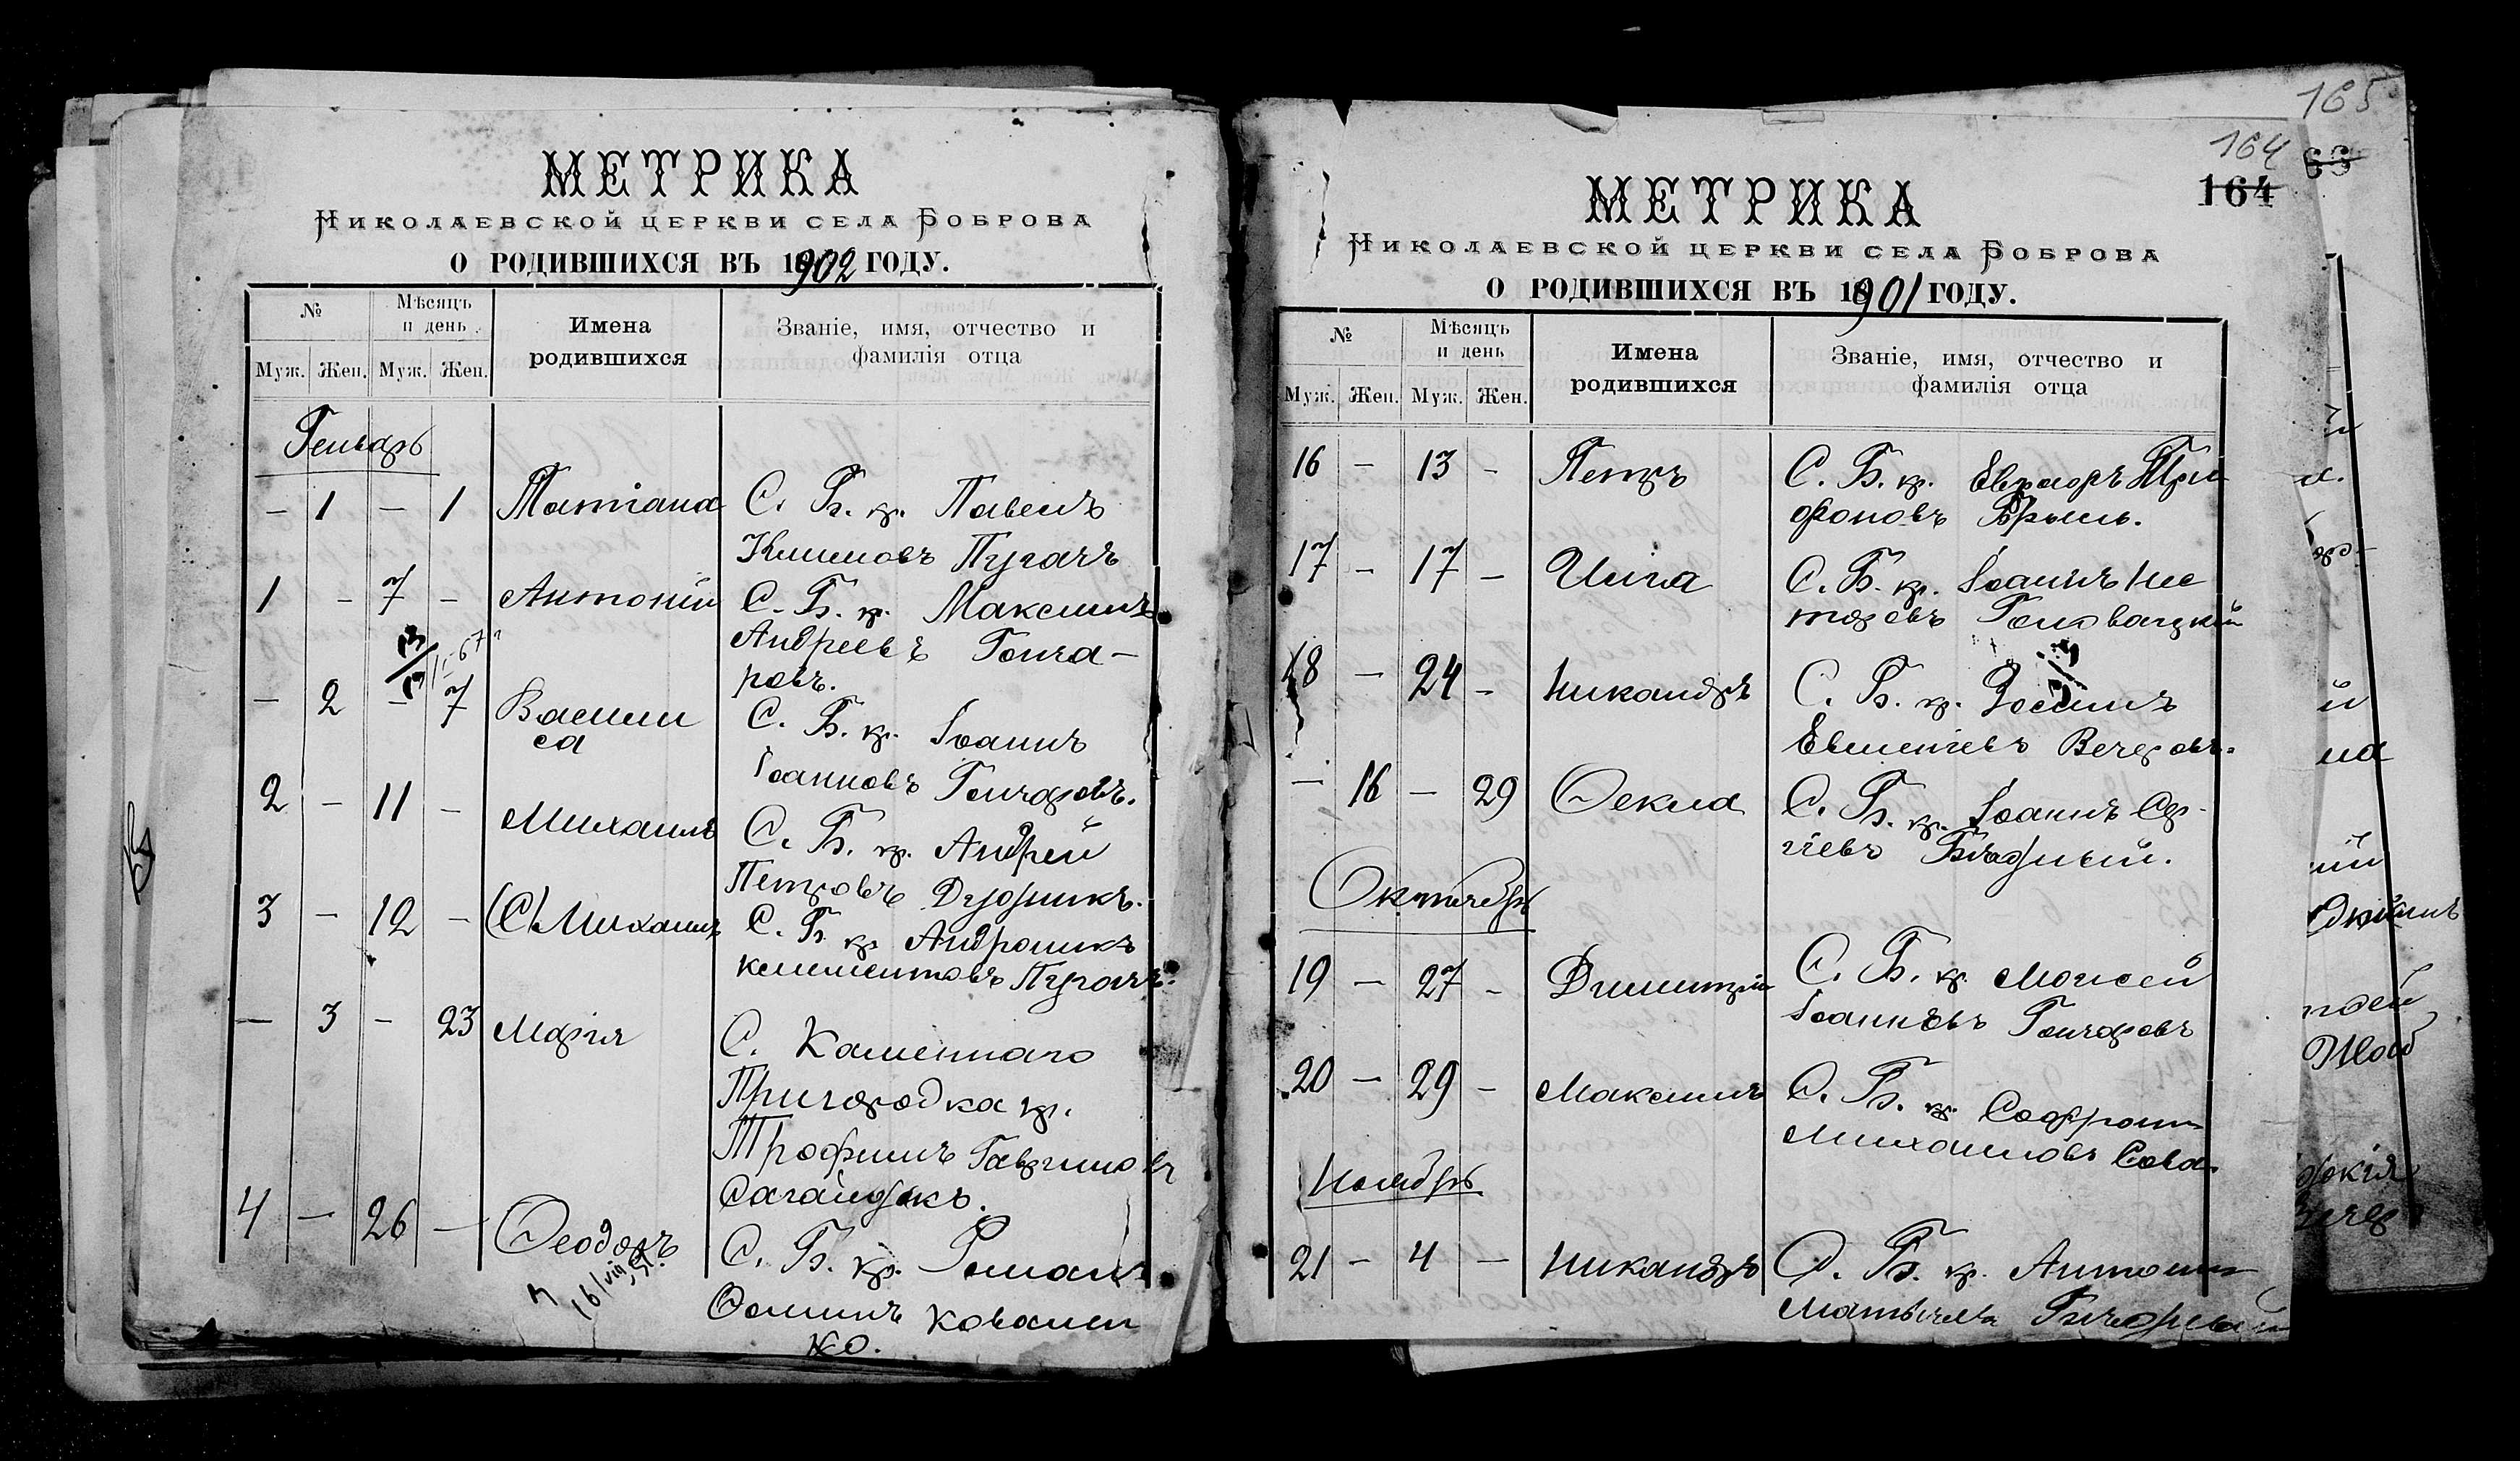 МЕТРИКА
Николаевской церкви села Боброва
О РОДИВШИХСЯ ВЪ 1902 ГОДУ.
№
Мѣсяцъ и день
Имена родившихся
Званіе, имя, отчество и фамилія отца
Муж. Жен. Муж. Жен.
Генварь
– 1 – 1 Татіана С. Б. кр. Павелъ
Климовъ Пугачъ
1 – 7 – Антоній С. Б. кр. Максимъ
Андреевъ Гонча–
ровъ.
– 2 – 7 Васили
са С. Б. кр. Іоаннъ
Іоанновъ Гончаровъ.
2 – 11 – Михаилъ С. Б. кр. Андрей
Петровъ Дудникъ.
3 – 12 – (С) Михаилъ С. Б. кр. Андроникъ
Климентовъ Пугачъ.
– 3 – 23 Марія С. Каменнаго
Пригородка кр.
Трофимъ Гавриловъ
Сагайдакъ.
4 – 26 – Ѳеодоръ С. Б. кр. Романъ
Ѳоминъ Ковален
ко.
165
164
164
МЕТРИКА
Николаевской церкви села Боброва
О РОДИВШИХСЯ ВЪ 1901 ГОДУ.
№
Мѣсяцъ и день
Имена родившихся
Званіе, имя, отчество и фамилія отца
Муж. Жен. Муж. Жен.
16 – 13 – Петръ С. Б. кр. Три
фоновъ
17 – 17 – С. Б. кр. Іоаннъ Нес
торовъ Головацкій
18 – 24 – Никандръ С. Б. кр. Зосимъ
Евменіевъ Вечеровъ.
– 16 – 29 Ѳекла С. Б. кр. Іоаннъ Сер-
гіевъ Бѣдный.
Октябрь
19 – 27 – Димитрій С. Б. кр. Моисей
Іоанновъ Гончаровъ
20 – 29 – Максимъ С. Б. кр. Софроній
Михаиловъ Сова.
Ноябрь
21 – 4 – Никандръ С. Б. кр. Антоній